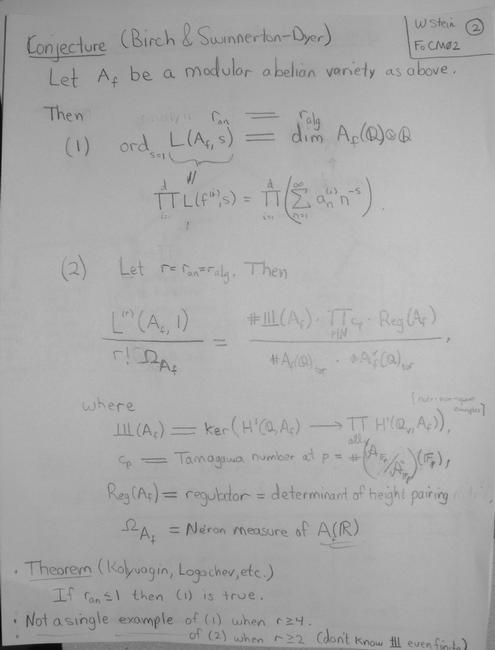 W Stein ②
FoCM02
Conjecture (Birch & Swinnerton-Dyer)
Let A_f be a modular abelian variety as above.
Then
r_an = r_alg
(1) ord_{s=1} L(A_f, s) = dim A_f(ℚ)⊗ℚ
∏_{i=1}^d L(f^{(i)}, s) = ∏_{i=1}^d (∑_{n=1}^∞ a_n^{(i)} n^{-s}).
(2) Let r = r_an = r_alg. Then
L^{(r)}(A_f, 1) / r! Ω_{A_f} = #Ш(A_f) · ∏_{p|N} c_p · Reg(A_f) / #A_f(ℚ)_tor · #A_f^∨(ℚ)_tor,
where
Ш(A_f) = ker(H¹(ℚ, A_f) → ∏_{all v} H¹(ℚ_v, A_f)),
c_p = Tamagawa number at p = #(A_{F_p}/A°_{F_p})(F_p),
Reg(A_f) = regulator = determinant of height pairing
Ω_{A_f} = Néron measure of A_f(ℝ)
• Theorem (Kolyvagin, Logachev, etc.)
If r_an ≤ 1 then (1) is true.
• Not a single example of (1) when r ≥ 4.
of (2) when r ≥ 2 (don't know Ш even finite)